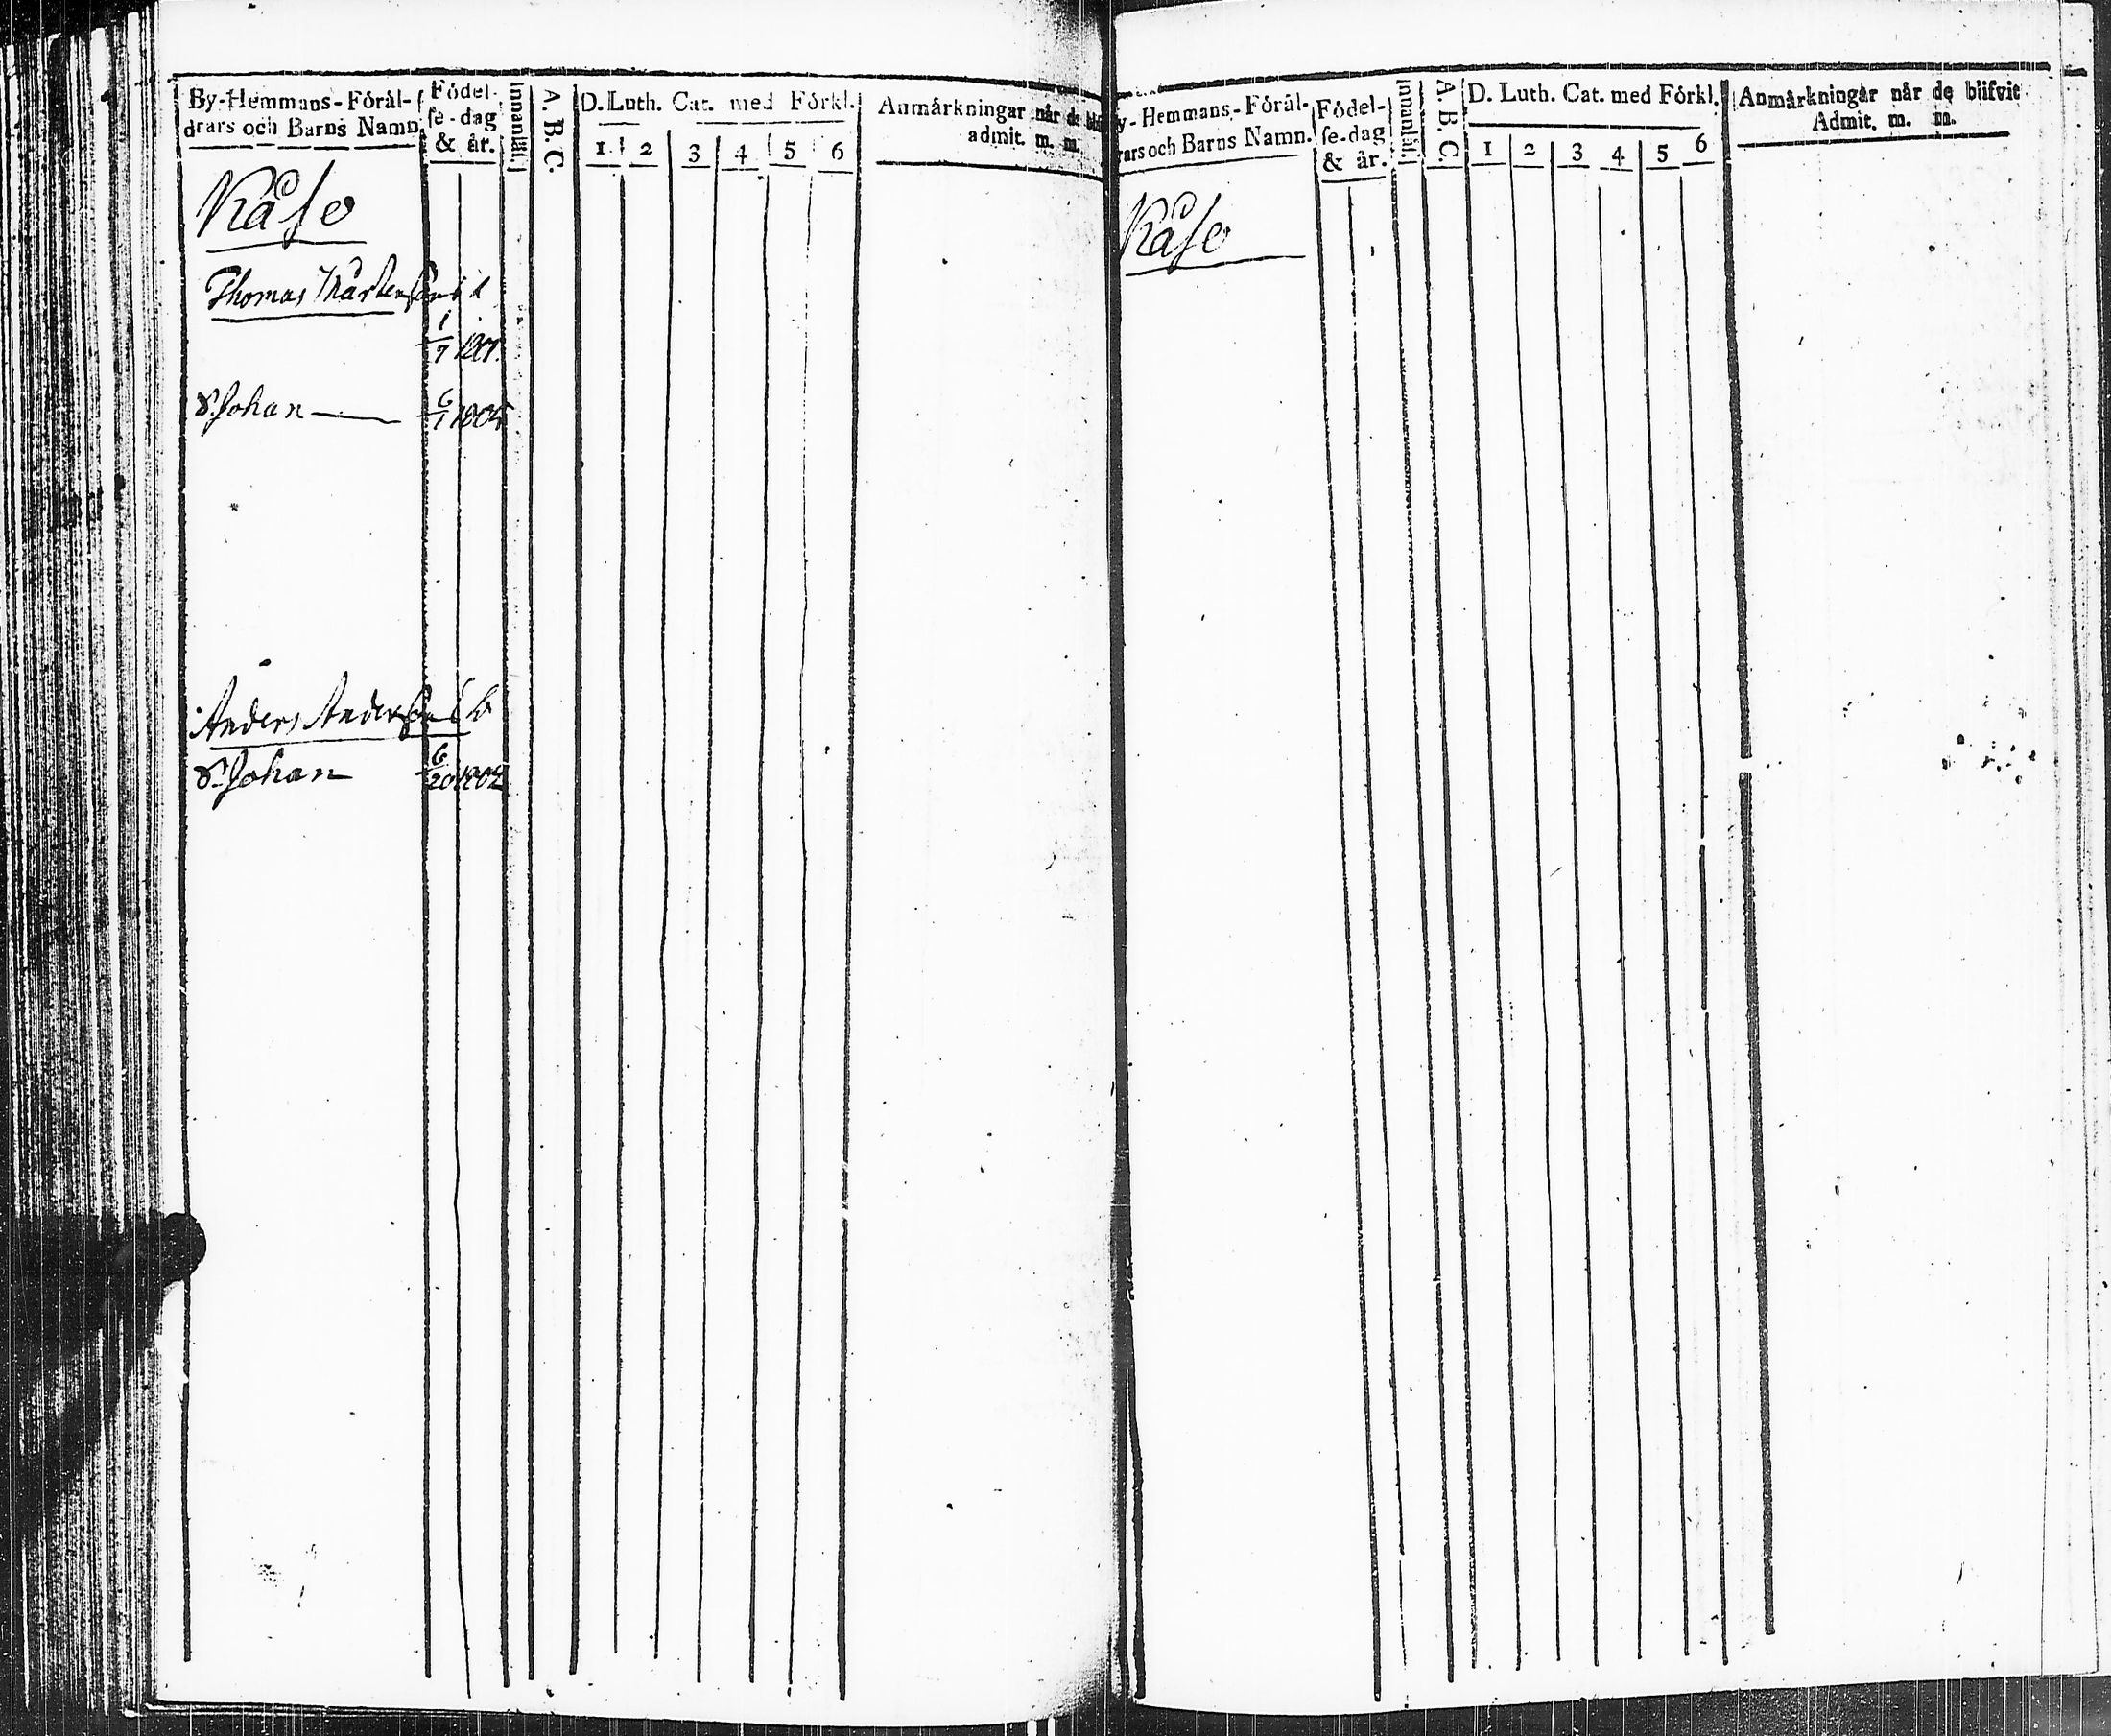 By-Hemmans-Föräl-
drars och Barns Namn.
Födel-
se-dag
& år.
Innanläs.
A. B. C.
D. Luth. Cat. med Förkl.
1 2 3 4 5 6
Anmärkningar när de
admit. m. m.
Kåso
Thomas Mårtenson
1/7 1801.
S. Johan 6/1
Anders Anderson
S. Johan 6/20 1802
y-Hemmans-Föräl-
rars och Barns Namn.
Födel-
se-dag
& år.
Innanläs.
A. B. C.
D. Luth. Cat. med Förkl.
1 2 3 4 5 6
Anmärkningar när de blifvit
Admit. m. m.
Kåso